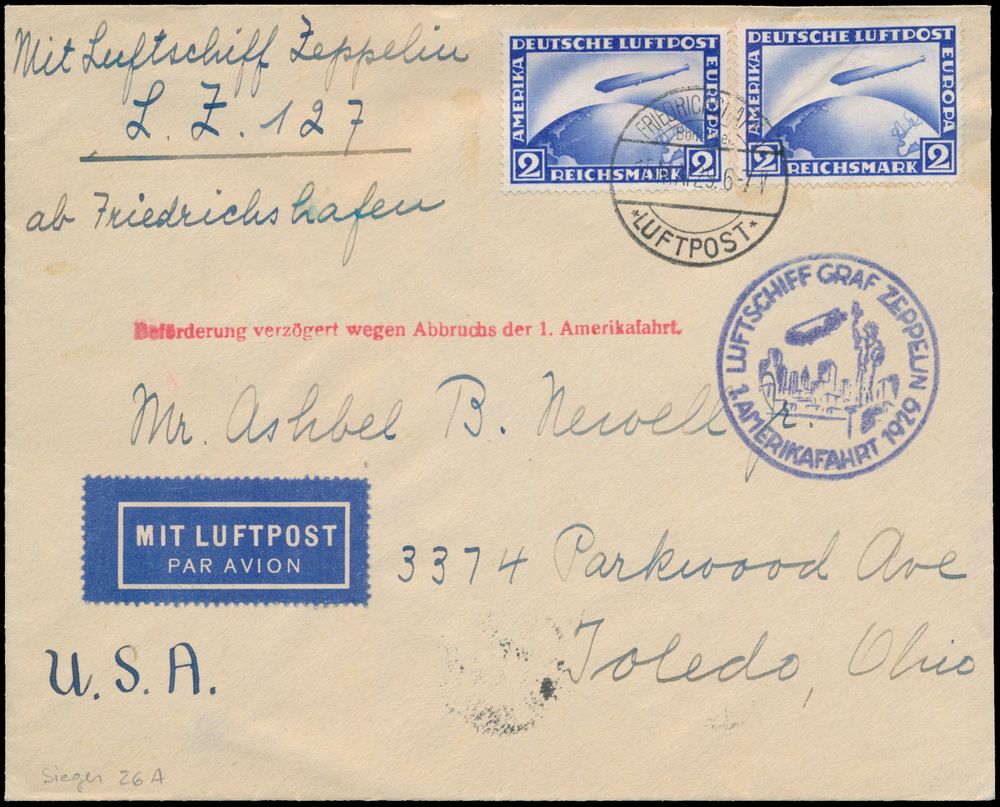 Mit Luftschiff Zeppelin
L. Z. 127
ab Friedrichshafen
DEUTSCHE LUFTPOST
AMERIKA
EUROPA
2 REICHSMARK 2
DEUTSCHE LUFTPOST
AMERIKA
EUROPA
2 REICHSMARK 2
*LUFTPOST*
LUFTSCHIFF GRAF ZEPPELIN
1. AMERIKAFAHRT 1929
Beförderung verzögert wegen Abbruchs der 1. Amerikafahrt.
Mr. Ashbel B. Newell Jr.
MIT LUFTPOST
PAR AVION
3374 Parkwood Ave
Toledo, Ohio
U. S. A.
Sieger 26 A